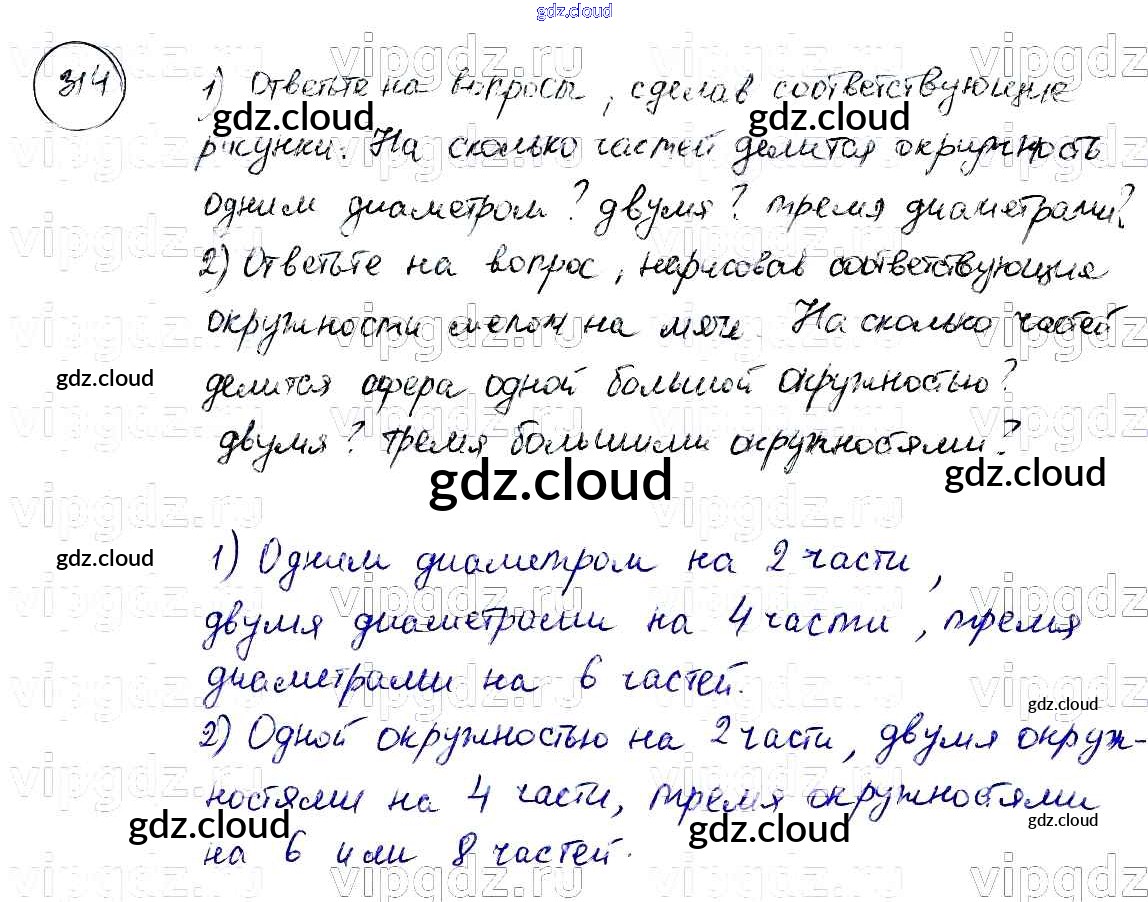 gdz.cloud
314
1) Ответьте на вопросы, сделав соответствующие
gdz.cloud gdz.cloud
рисунки. На сколько частей делится окружность
одним диаметром? двумя? тремя диаметрами?
2) Ответьте на вопрос, нарисовав соответствующие
окружности мелом на мяче. На сколько частей
gdz.cloud
делится сфера одной большой окружностью?
двумя? тремя большими окружностями?
gdz.cloud gdz.cloud
gdz.cloud
1) Одним диаметром на 2 части,
двумя диаметрами на 4 части, тремя
диаметрами на 6 частей.
gdz.cloud
2) Одной окружностью на 2 части, двумя окруж-
ностями на 4 части, тремя окружностями
gdz.cloud gdz.cloud gdz.cloud
на 6 или 8 частей.
vipgdz.ru